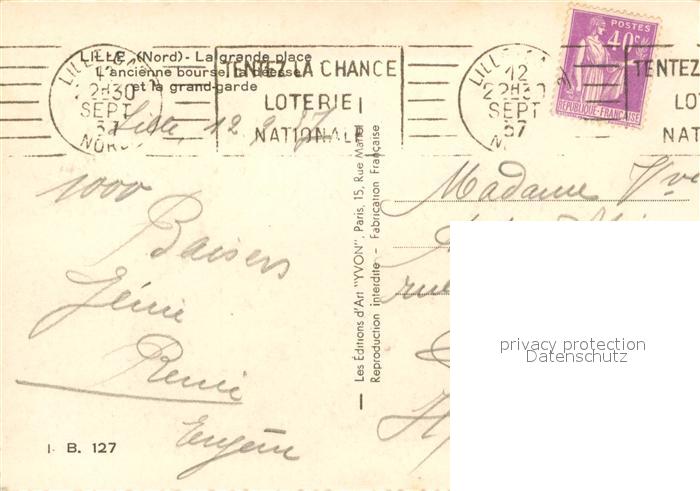 LILLE (Nord) - La grande place
L'ancienne bourse, la déesse
et la grand-garde
LILLE
12
22H30
SEPT
37
NORD
TENTEZ LA CHANCE
LOTERIE
NATIONALE
LILLE
12
22H30
SEPT
37
TENTEZ
LO
NA
POSTES
40c
REPUBLIQUE-FRANÇAISE
Lille, 12 9 37
1000
Baisers
Génie
René
Eugène
I. B. 127
Les Editions d'Art "YVON", Paris, 15, Rue Martel
Reproduction interdite - Fabrication Française
Madame Vve
rue
privacy protection
Datenschutz